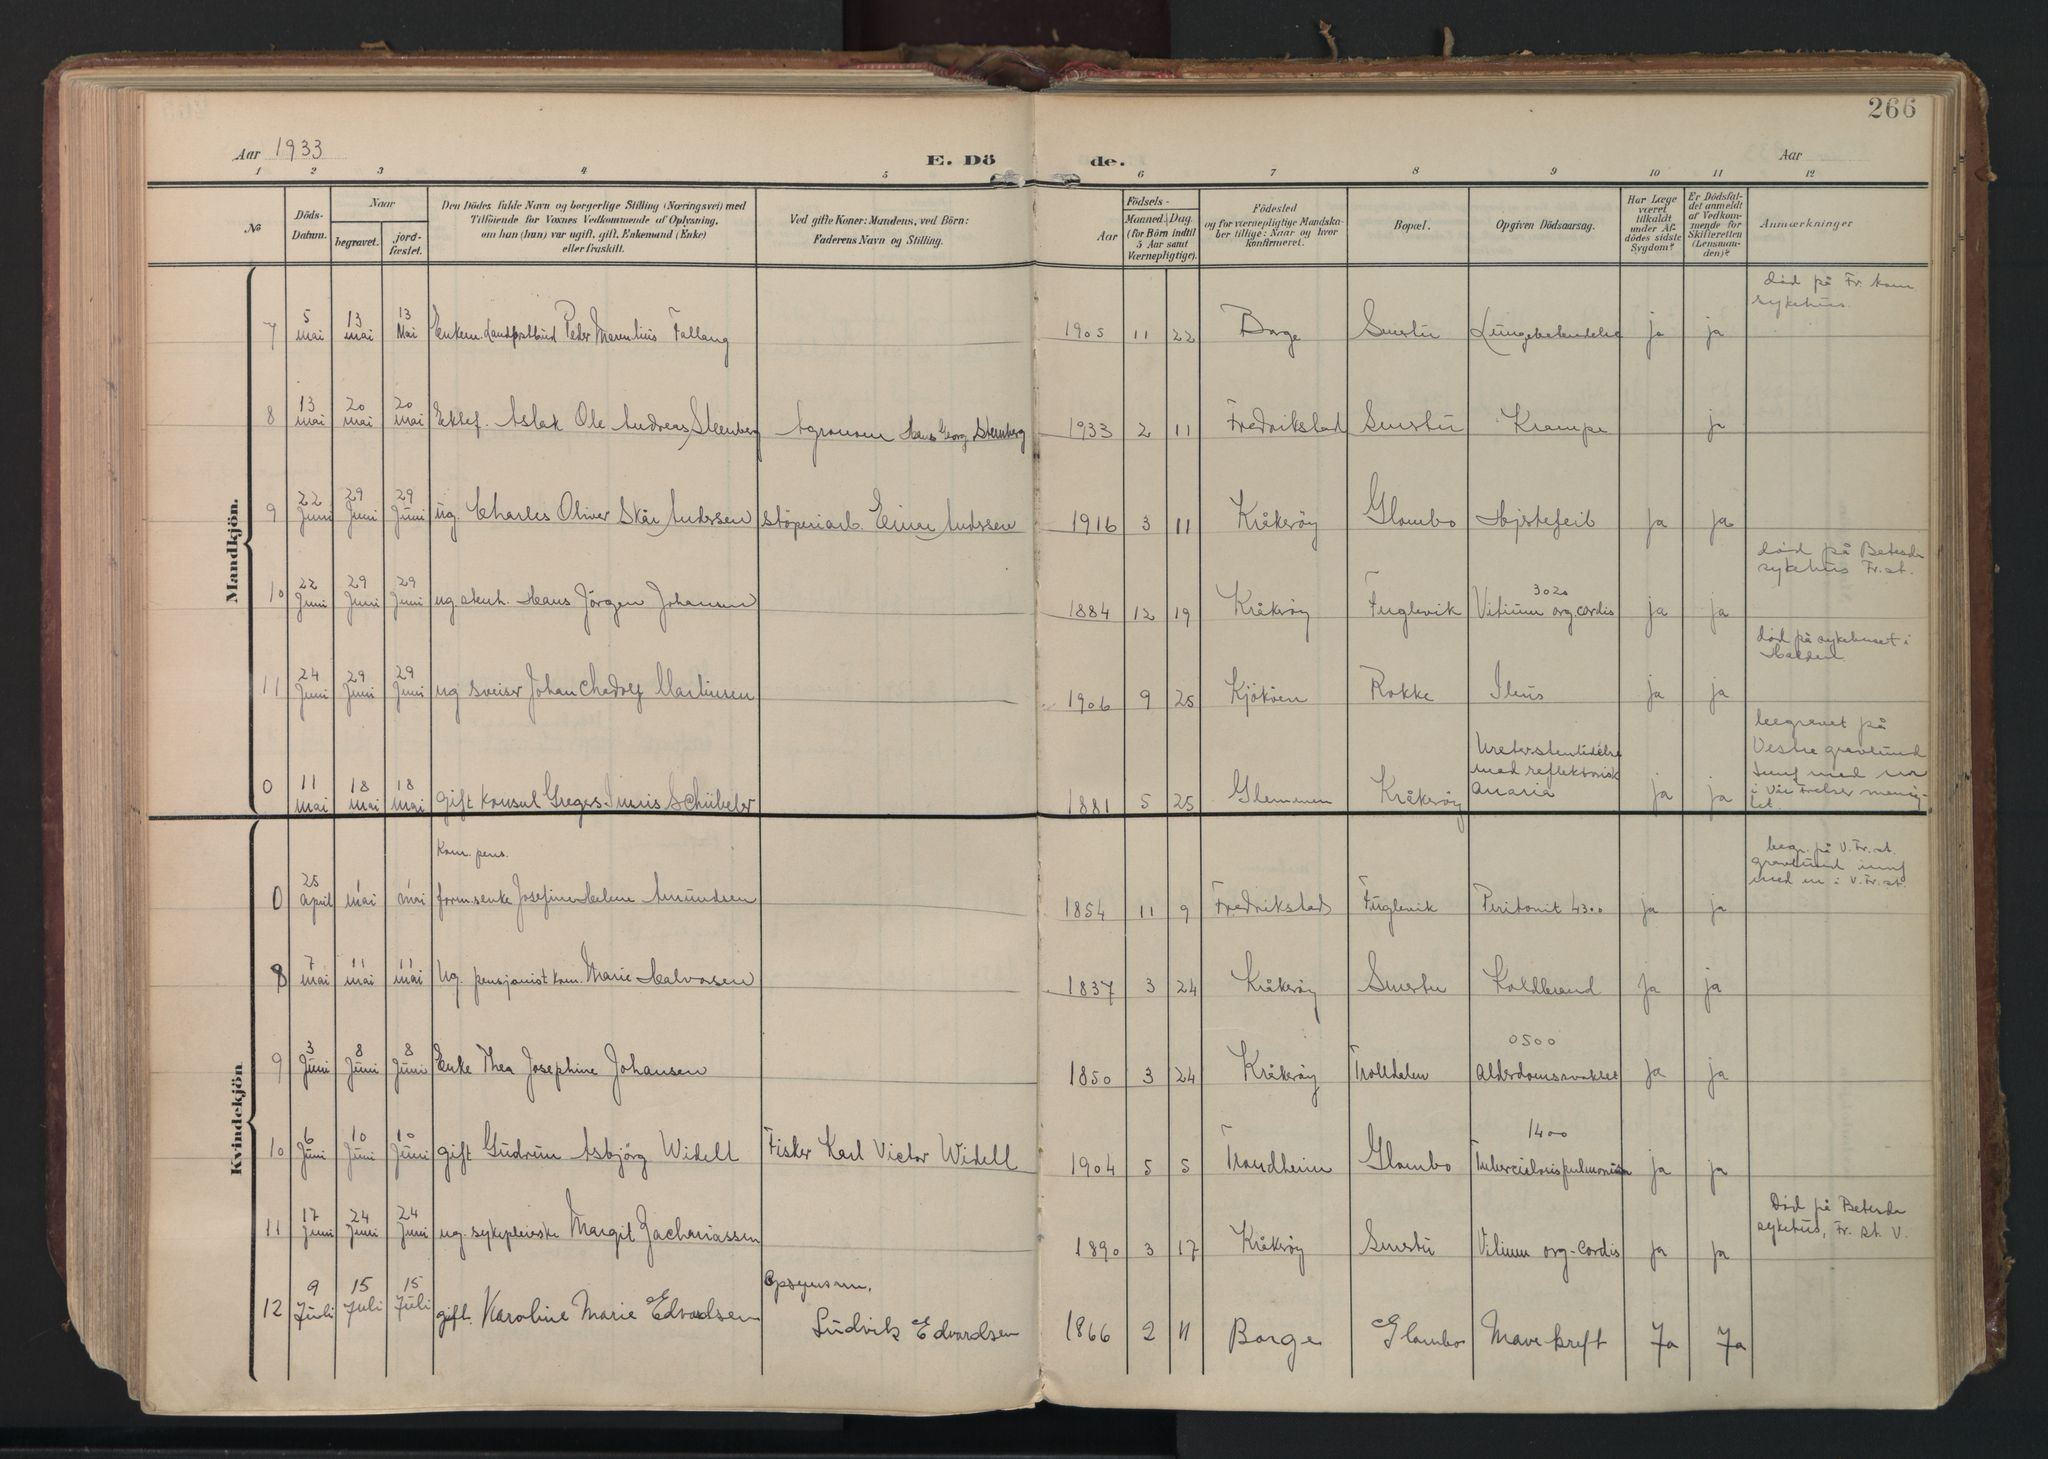 266
Aar 1933
E. Döde.
Aar
1 2 3 4 5 6 7 8 9 10 11 12
№
Döds-Datum.
Naar
begravet.
jordfæstet.
Den Dödes fulde Navn og borgerlige Stilling (Næringsvei) med
Tilföiende for Voxnes Vedkommende af Oplysning,
om han (hun) var ugift, gift, Enkemand (Enke)
eller fraskilt.
Ved gifte Koner: Mandens, ved Börn:
Faderens Navn og Stilling.
Födsels-
Aar
Maaned. Dag.
(for Börn indtil
5 Aar samt
Værnepligtige).
Födested
og for værnepligtige Mandskaber tillige: Naar og hvor
konfirmeret.
Bopæl.
Opgiven Dödsaarsag.
Har Læge
været
tilkaldt
under Afdödes sidste
Sygdom?
Er Dödsfaldet anmeldt
af Vedkommende for
Skifteretten
(Lensmanden)?
Anmærkninger
Mandkjön.
død på Fr. kom
sykehus.
7 5 mai 13 mai 13 Mai Enkem. Landpostbud Peder Fallang 1905 11 22 Borge Smertu Lungebetendelse ja ja
8 13 mai 20 mai 20 mai Ektef. Aslak Ole Andreas Steenberg Agronom Hans Georg Steenberg 1933 2 11 Fredrikstad Smertu Krampe ja
9 22 Juni 29 Juni 29 Juni ug. Charles Oliver Skår Anderssen støperiarb. Einar Anderssen 1916 3 11 Kråkerøy Glombo Hjertefeil ja ja
død på Betesda
sykehus Fr.st.
10 22 Juni 29 Juni 29 Juni ug. Hans Jörgen Johansen 1884 12 19 Kråkerøy Fuglevik 3020 Vitium org. cordis ja ja
død på sykehuset i
Halden
11 24 Juni 29 Juni 29 Juni ug sveiser Johan Martinsen 1906 9 25 Kjøkøen Rokke Ileus ja ja
begravet på
Vestre gravlund
med
i Vår Frelser menighet.
0 11 mai 18 mai 18 mai gift Konsul Gregers Schübeler 1881 5 25 Glemmen Kråkerøy med reflektorisk anuria ja ja
Kvindekjön
begr. på V. Fr. st.
gravlund
med i V. Fr. st.
Kom. pens.
0 25 april 1 mai 1 mai form. enke Josefine Helene Amundsen 1854 11 9 Fredrikstad Fuglevik Peritonit 4300 ja ja
8 7 mai 11 mai 11 mai Ug. pensjonist kom. Marie Halvorsen 1837 3 24 Kråkerøy Smertu Koldbrand ja ja
9 3 Juni 8 Juni 8 Juni Enke Thea Josephine Johansen 1850 3 24 Kråkerøy Trolldalen 0500 Alderdomssvakhet ja ja
10 6 Juni 10 Juni 10 Juni gift Gudrun Asbjörg Widell Fisker Karl Victor Widell 1904 5 5 Trondheim Glombo 1400 Tuberculosis pulmonum ja ja
Død på Betesda
sykehus, Fr. st. V.
11 17 Juni 24 Juni 24 Juni ug. sykepleierske Margit Zachariassen 1890 3 17 Kråkerøy Smertu Vitium org. cordis ja ja
12 9 Juli 15 Juli 15 Juli gift. Karoline Marie Edvardsen Opsynsm. Ludvik Edvardsen 1866 2 11 Borge Glombo Mavekreft Ja Ja